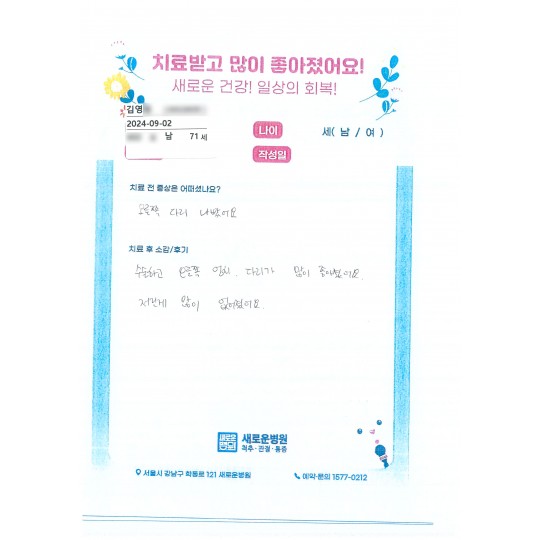 치료받고 많이 좋아졌어요!
새로운 건강! 일상의 회복!
김영
2024-09-02
남 71 세
나이 세( 남 / 여 )
작성일
치료 전 증상은 어떠셨나요?
오른쪽 다리 나빴어요
치료 후 소감/후기
수술하고 오른쪽 엉치, 다리가 많이 좋아졌어요.
저린게 많이 없어졌어요
새로운병원
새로운병원
척추·관절·통증
서울시 강남구 학동로 121 새로운병원
예약·문의 1577-0212